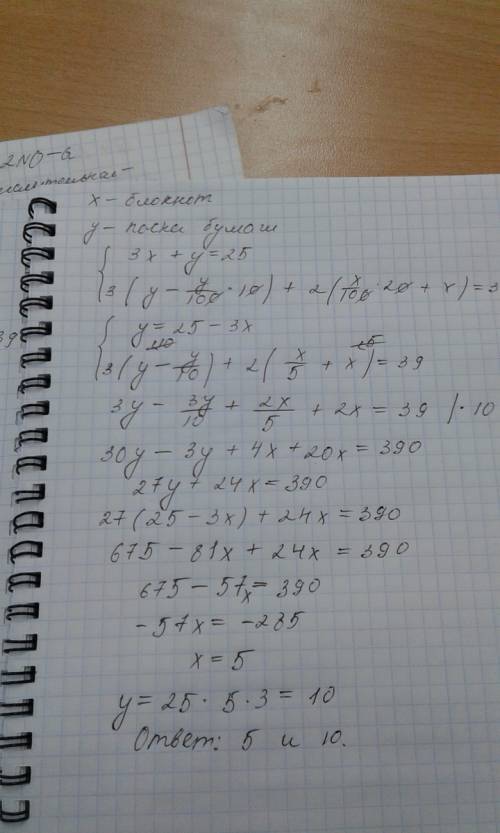 2NO-6
x - блокнот
y - пачка бумаги
3x + y = 25
3(y - y/100 · 10) + 2(x/100 · 20 + x) = 3
39
y = 25 - 3x
3(y - y/10) + 2(x/5 + x) = 39
3y - 3y/10 + 2x/5 + 2x = 39 | · 10
30y - 3y + 4x + 20x = 390
27y + 24x = 390
27(25 - 3x) + 24x = 390
675 - 81x + 24x = 390
675 - 57x = 390
-57x = -285
x = 5
y = 25 · 5 · 3 = 10
Ответ: 5 и 10.